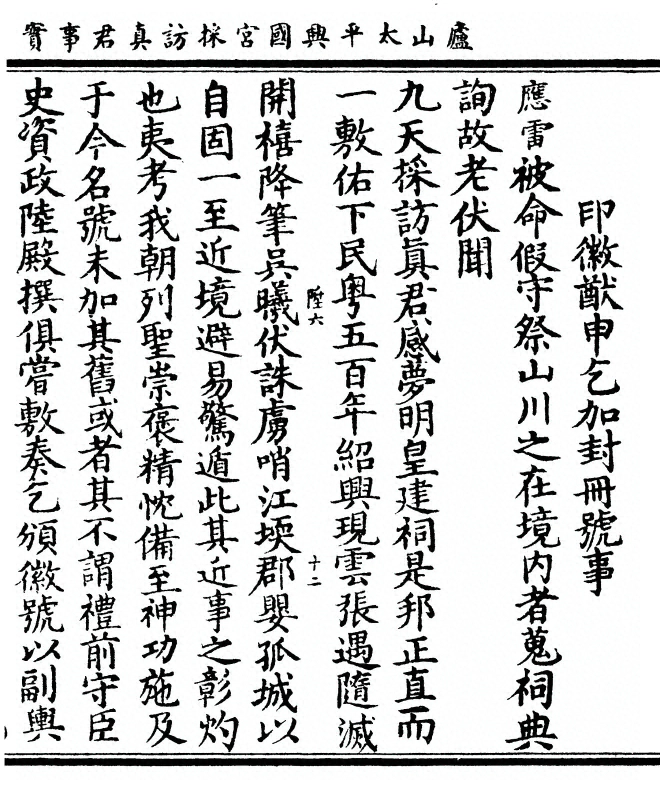 廬山太平興國宮採訪真君事實
印徽猷申乞加封冊號事
應雷被命假守祭山川之在境内者蒐祠典
詢故老伏聞
九天採訪眞君感夢明皇建祠是邦正直而
一敷佑下民粤五百年紹興現雲張遇隨滅
陞六
十二
開禧降筆吳曦伏誅虜哨江堧郡嬰孤城以
自固一至近境避易驚遁此其近事之彰灼
也夷考我朝列聖崇褒精忱備至神功施及
于今名號未加其舊或者其不謂禮前守臣
史資政陸殿撰俱嘗敷奏乞頒徽號以副輿